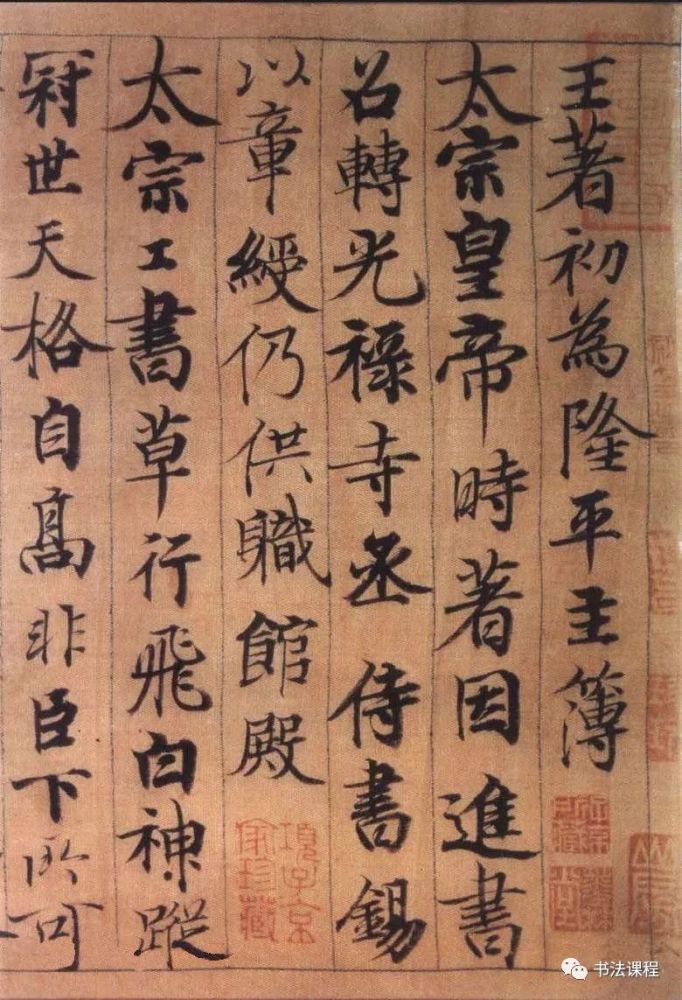 王著初為隆平主簿
太宗皇帝時著因進書
召轉光祿寺丞侍書錫
以章綬仍供職館殿
太宗工書草行飛白神蹤
冠世天格自高非臣下所可
項子京家珍藏
书法课程